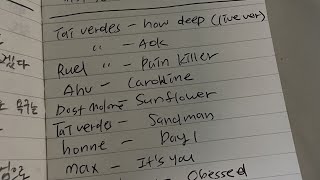 Tai verdes - how deep (live ver)
" - Aok
Ruel - Pain killer
Ahu - Caroline
Post malone - Sunflower
Tai verdes - Sandman
honne - Day 1
max - It's you
Obsessed